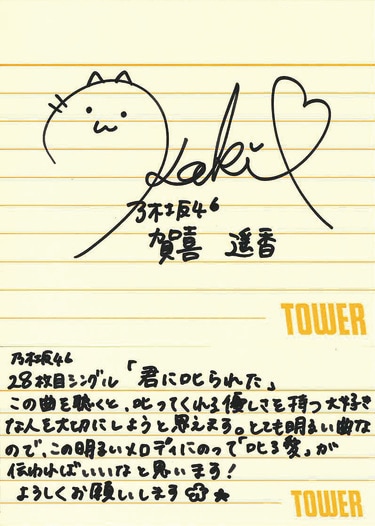 Kaki
乃木坂46
賀喜 遥香
TOWER
乃木坂46
28枚目シングル「君に叱られた」
この曲を聴くと、叱ってくれる優しさを持つ大好き
な人を大切にしようと思えます。とても明るい曲な
ので、この明るいメロディにのって「叱る愛」が
伝わればいいなと思います！
よろしくお願いします
TOWER